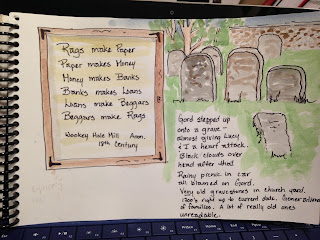 Rags make Paper
Paper makes Money
Money makes Banks
Banks makes Loans
Loans make Beggars
Beggars make Rags
Wookey Hole Mill Anon.
18th Century
Gord stepped up
onto a grave -
almost giving Lucy
& I a heart attack.
Black clouds over
head after that
Rainy picnic in car
all blamed on Gord.
Very old gravestones in church yard.
1200's right up to current date.
of families. A lot of really old ones
unreadable.